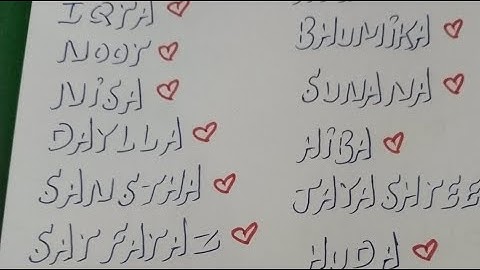 IQRA
NOOR
NISA
DAYLLA
SANSTHA
SARFARAZ
BHUMIKA
SUNANA
HIBA
JAYASHREE
HUDA